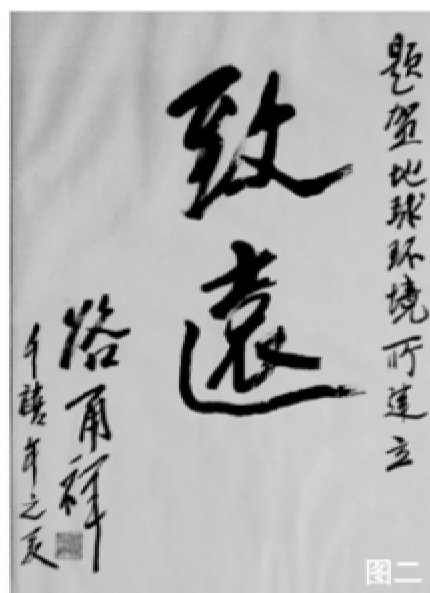 题贺地球环境所建立
致遠
路甬祥
千禧年之夏
图二